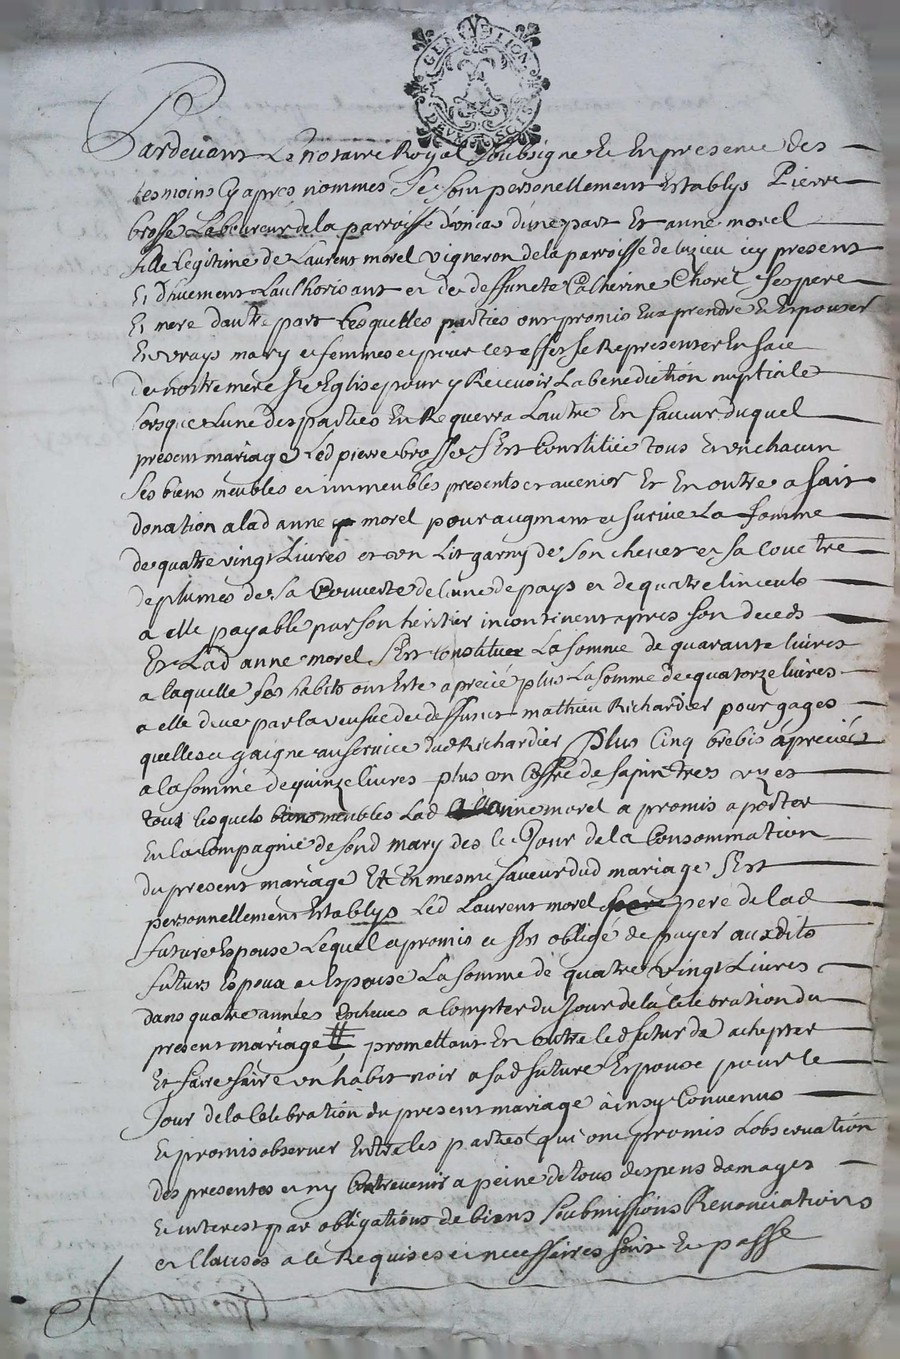 GEN ELION
DEVX SOLS
Pardevant Le Notaire Royal Soubsigne Et En presence des
tesmoins Cy apres nommes Se Son personellement Establys Pierre
brosse Laboureur de la parroisse d'une part Et anne morel
fille legitime de Laurent morel vigneron de la parroisse de Luzieu icy present
Et dhuement L'authorisant et de deffuncte Catherine Chorel Ses pere
Et mere dautre part Lesquelles parties ont promis Eux prendre Et Espouser
En vrays mary et femme et pour cest effet Se Representer En face
de nostre mere Ste Eglise pour y Recevoir La benediction nuptiale
Lorsque Lune des parties En Requerra Lautre En faveur duquel
present mariage Led pierre brosse S'Est Constitué tous Et un chacun
Ses biens meubles et immeubles presents et avenir Et En outre a fait
donation a lad anne morel pour augment et survie La Somme
de quatre vingt Livres et un Lit garny de Son chevet et Sa Couetre
de plumes de Sa Couverte de Laine de pays et de quatre linceuls
a elle payable par Son heritier incontinent apres Son deceds
Et Lad anne morel S'Est constituee La Somme de quarante livres
a laquelle Ses habits ont Esté aprecié plus La Somme de quatorze livres
a elle deue par la veufve de deffunct mathieu Richardier pour gages
quelle a gaigne au Service dud Richardier plus Cinq brebis apreciés
a la Somme de quinze livres plus un Coffre de Sapin tres uzet
tous lesquels biens meubles Lad anne morel a promis aporter
En la Compagnie de Sond mary des le Jour de la Consommation
du present mariage Et En mesme faveur dud mariage S'Est
personnellement Establys Led Laurent morel pere de lad
future Espouse Lequel a promis et S'Est obligé de payer auxdits
futurs Espoux et Espouse La Somme de quatre vingt Livres
dans quatre années Escheues a Compter du Jour de la Celebration du
present mariage promettant En outre led futur de achepter
Et faire faire un habit noir a Sad future Espouse pour le
Jour de la Celebration du present mariage ainsy Convenus
Et promis observer Entre les parties qui ont promis Lobservation
des presentes et ny Contrevenir a peine de tous despens damages
Et interest par obligations de biens Soubmissions Renonciations
et Clauses a ce Requises et necessaires fait Et passé